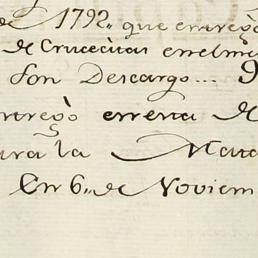 de 1792,, que entregò
de Crucecitas en el mis
Son Descargo... 9
ntregò en esta de
para la Mata
En 6,, de Noviem